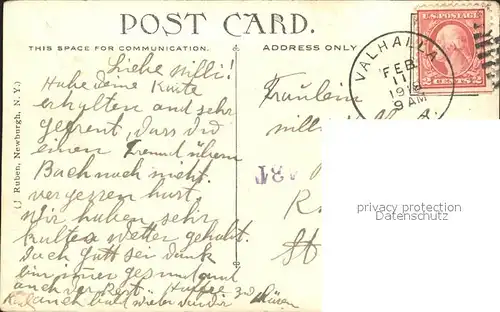 POST CARD.
THIS SPACE FOR COMMUNICATION.
ADDRESS ONLY
U.S. POSTAGE
2 CENTS 2
VALHALLA
FEB
11
9 AM
(J. Ruben, Newburgh, N. Y.)
Liebe Milli!
Habe deine Karte
erhalten und sehr
gefreut, dass du
einen Freund überm
Bach noch nicht
vergessen hast.
Wir haben sehr
kaltes Wetter gehabt.
Doch Gott sei dank
bin immer gesund und
auch der Rest. Hoffe zu
auch bald wieder von dir
hören
Fräulein
Milli
R.
St
privacy protection
Datenschutz